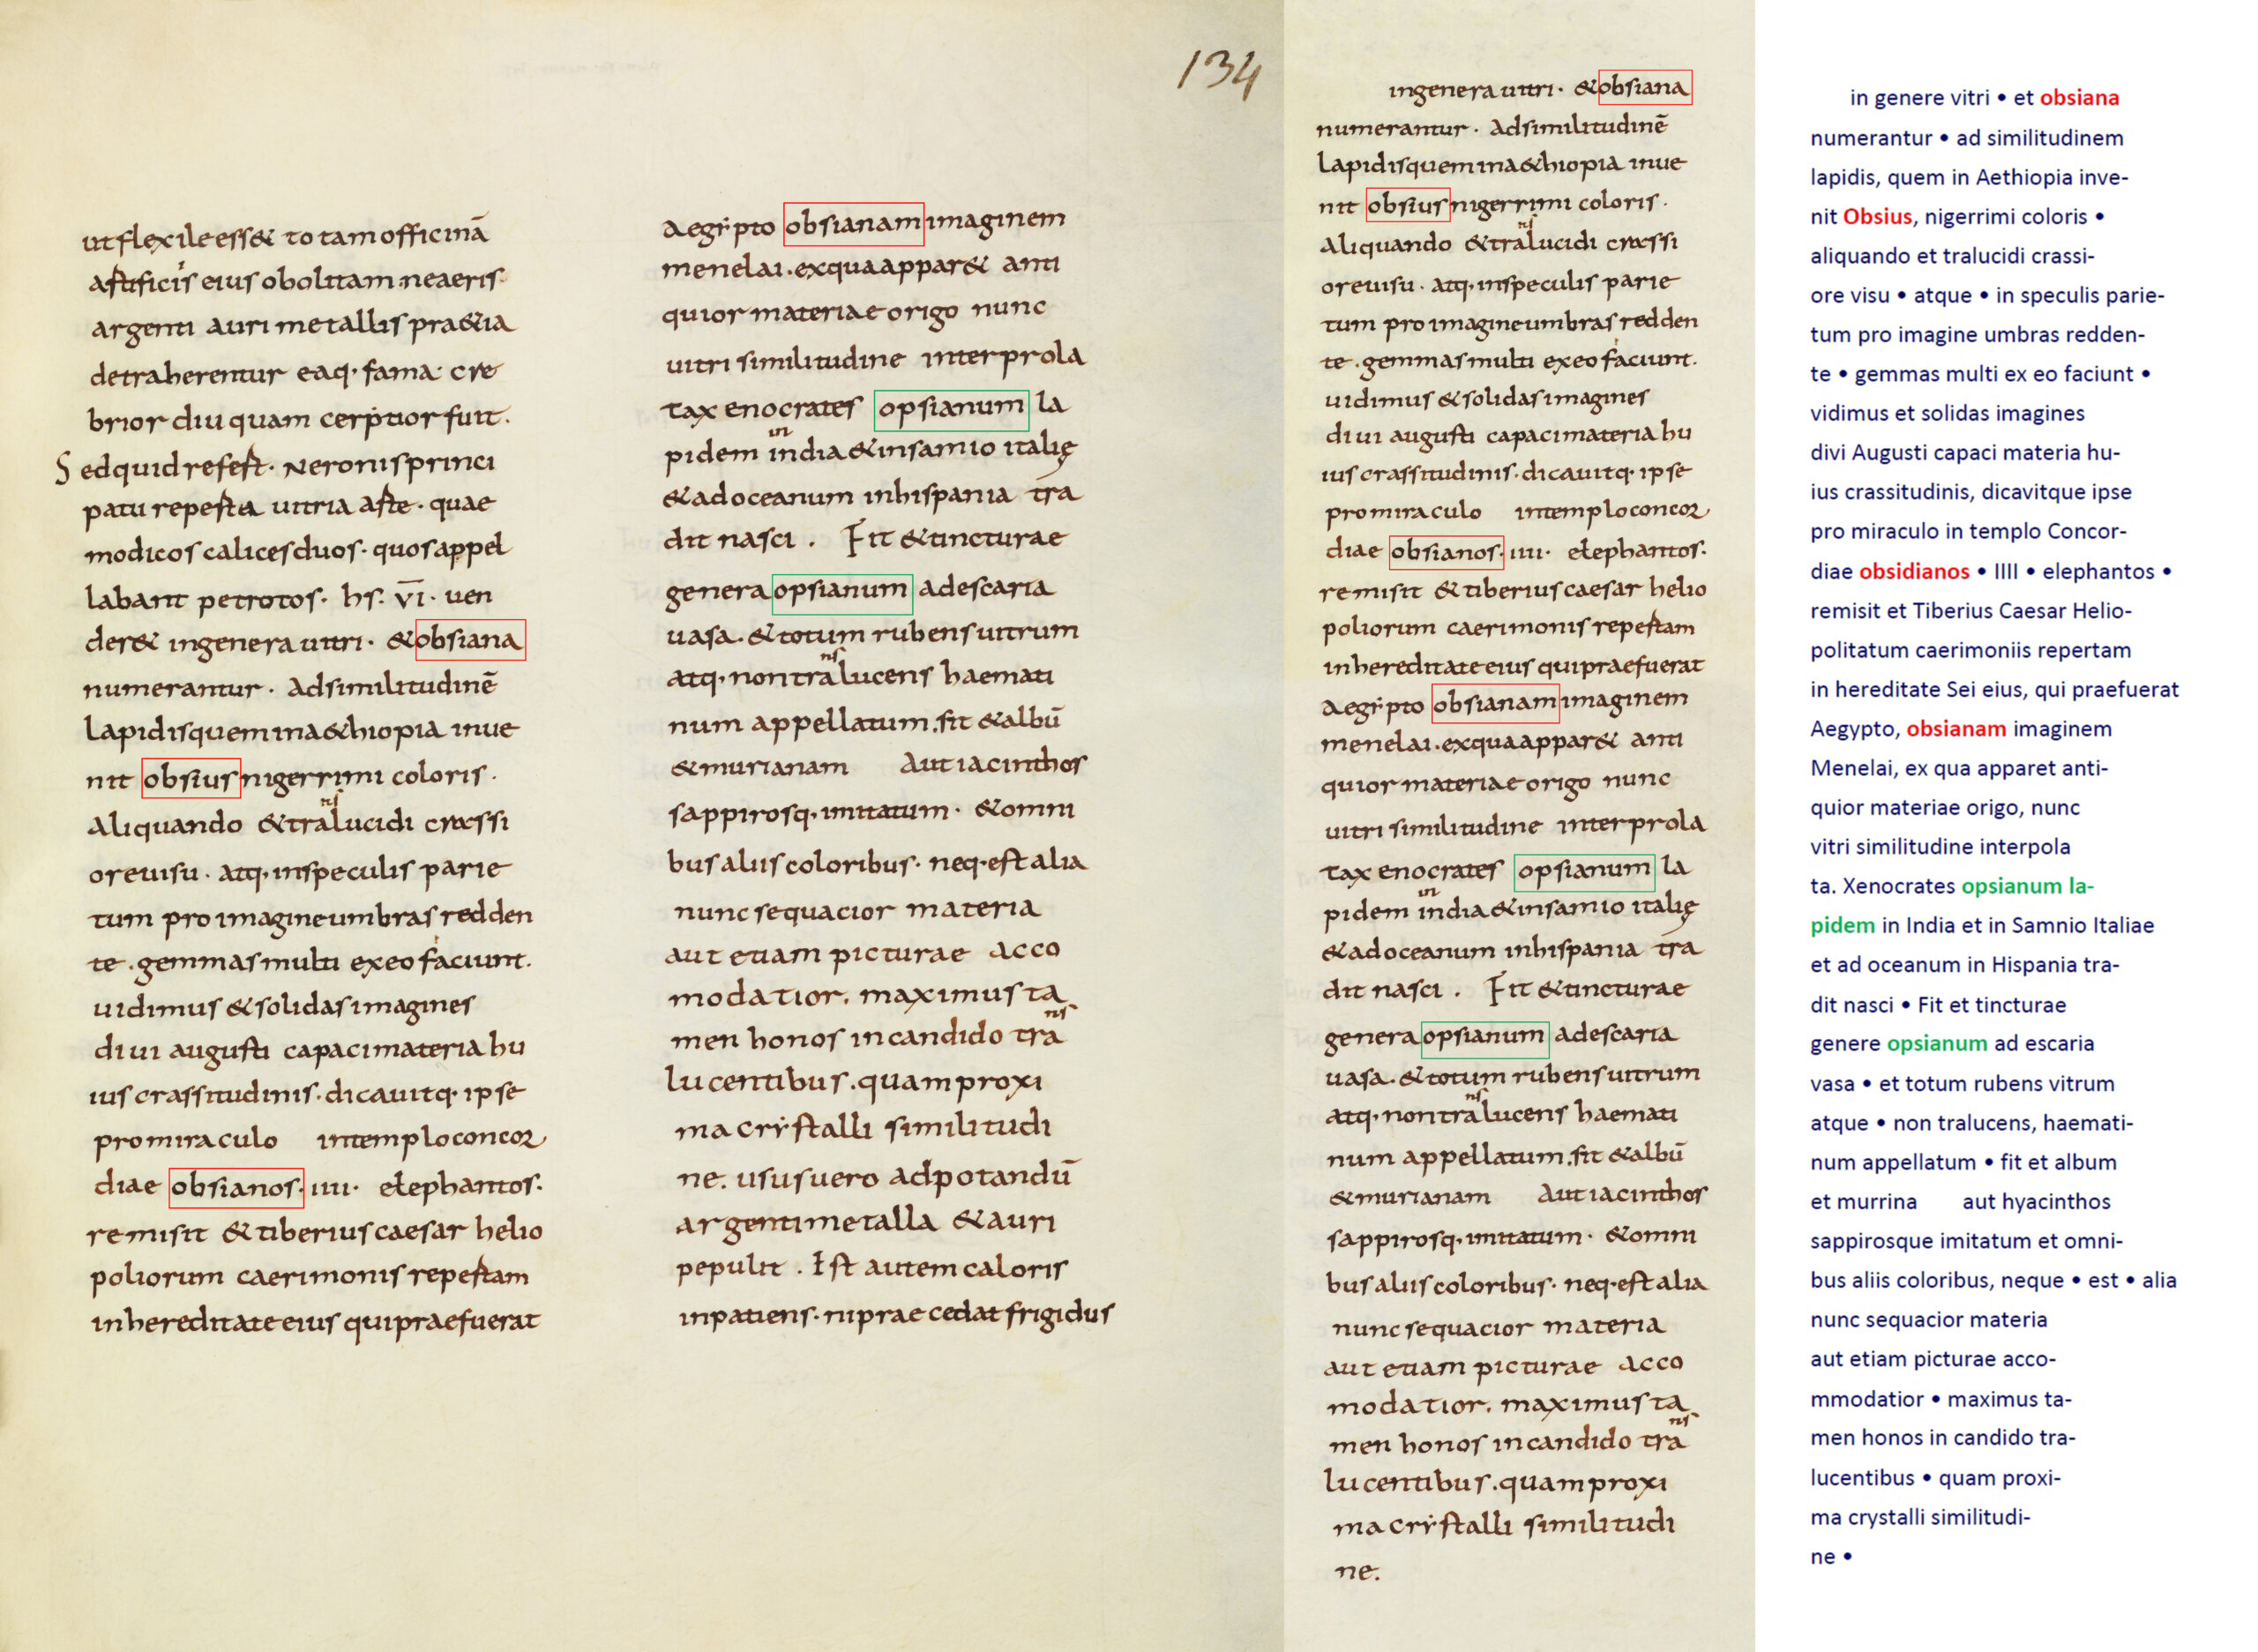 134
ut flexile ess& totam officinā
artificis eius obolitam. ne aeris
argenti auri metallis pr&ia
detraherentur eaq. fama. cre
brior diu quam certior fuit.
Sed quid refert. Neronis princi
patu reperta uitri arte. quae
modicos calices duos. quos appel
labant petrotos. hs. VI. uen
der& in genera uitri. & obsiana
numerantur. Ad similitudinē
lapidis quem in a&hiopia inue
nit obsius nigerrimi coloris.
Aliquando & tralucidi crassi
ns
ore uisu. atq. in speculis parie
tum pro imagine umbras redden
te. gemmas multi ex eo faciunt.
uidimus & solidas imagines
diui augusti capaci materia hu
ius crassitudinis. dicauitq. ipse
pro miraculo in templo concor
diae obsianos. iiii. elephantos.
remisit & tiberius caesar helio
poliorum caerimonis repertam
in hereditate eius qui praefuerat
Aegipto obsianam imaginem
menelai. ex qua appar& anti
quior materiae origo nunc
uitri similitudine interprola
ta xenocrates opsianum la
in
pidem india & in samio italię
& ad oceanum in hispania tra
dit nasci. Fit & tincturae
genera opsianum ad escaria
uasa. & totum rubens uitrum
ns
atq. non tralucens haemati
num appellatum. fit & albū
& murianam Aut iacinthos
sappirosq. imitatum. & omni
bus aliis coloribus. neq. est alia
nunc sequacior materia
aut etiam picturae acco
modatior. maximus ta
ns
men honos in candido tra
lucentibus. quam proxi
ma cristalli similitudi
ne. usus uero ad potandū
argenti metalla & auri
pepulit. Est autem caloris
inpatiens. ni praecedat frigidus
in genera uitri. & obsiana
numerantur. Ad similitudinē
lapidis quem in a&hiopia inue
nit obsius nigerrimi coloris.
ns
Aliquando & tralucidi crassi
ore uisu. atq. in speculis parie
tum pro imagine umbras redden
te. gemmas multi ex eo faciunt.
uidimus & solidas imagines
diui augusti capaci materia hu
ius crassitudinis. dicauitq. ipse
pro miraculo in templo concor
diae obsianos. iiii. elephantos.
remisit & tiberius caesar helio
poliorum caerimonis repertam
in hereditate eius qui praefuerat
Aegipto obsianam imaginem
menelai. ex qua appar& anti
quior materiae origo nunc
uitri similitudine interprola
ta xenocrates opsianum la
in
pidem india & in samio italię
& ad oceanum in hispania tra
dit nasci. Fit & tincturae
genera opsianum ad escaria
uasa. & totum rubens uitrum
ns
atq. non tralucens haemati
num appellatum. fit & albū
& murianam Aut iacinthos
sappirosq. imitatum. & omni
bus aliis coloribus. neq. est alia
nunc sequacior materia
aut etiam picturae acco
modatior. maximus ta
ns
men honos in candido tra
lucentibus. quam proxi
ma cristalli similitudi
ne.
in genere vitri • et obsiana
numerantur • ad similitudinem
lapidis, quem in Aethiopia inve-
nit Obsius, nigerrimi coloris •
aliquando et tralucidi crassi-
ore visu • atque • in speculis parie-
tum pro imagine umbras redden-
te • gemmas multi ex eo faciunt •
vidimus et solidas imagines
divi Augusti capaci materia hu-
ius crassitudinis, dicavitque ipse
pro miraculo in templo Concor-
diae obsidianos • IIII • elephantos •
remisit et Tiberius Caesar Helio-
politatum caerimoniis repertam
in hereditate Sei eius, qui praefuerat
Aegypto, obsianam imaginem
Menelai, ex qua apparet anti-
quior materiae origo, nunc
vitri similitudine interpola
ta. Xenocrates opsianum la-
pidem in India et in Samnio Italiae
et ad oceanum in Hispania tra-
dit nasci • Fit et tincturae
genere opsianum ad escaria
vasa • et totum rubens vitrum
atque • non tralucens, haemati-
num appellatum • fit et album
et murrina aut hyacinthos
sappirosque imitatum et omni-
bus aliis coloribus, neque • est • alia
nunc sequacior materia
aut etiam picturae acco-
mmodatior • maximus ta-
men honos in candido tra-
lucentibus • quam proxi-
ma crystalli similitudi-
ne •